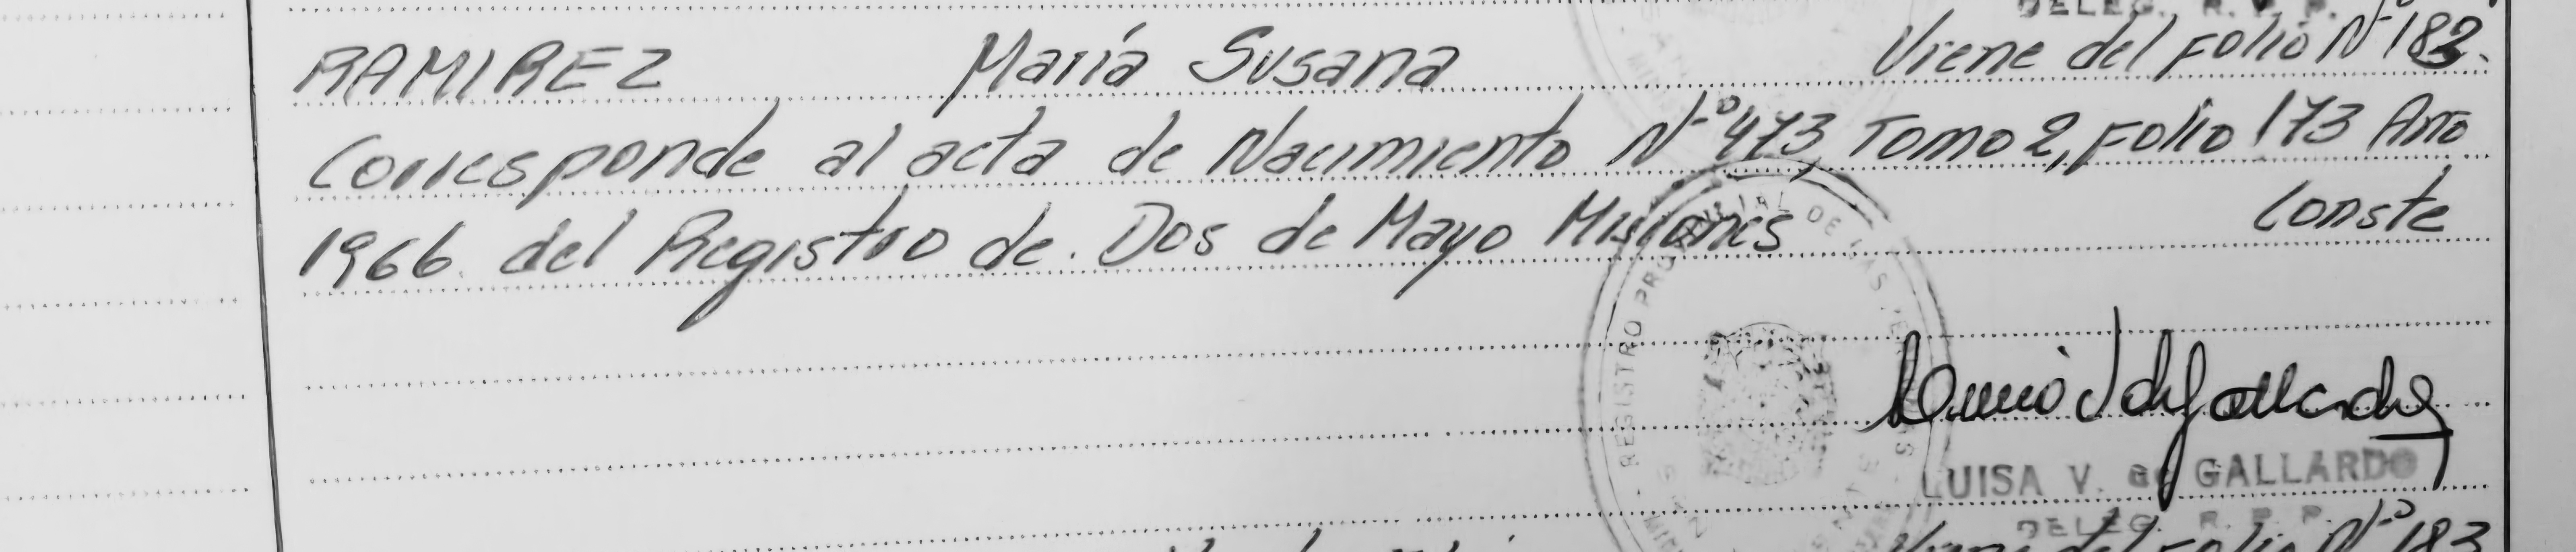 DELEG. R. P. P.
RAMIREZ María Susana Viene del Folio Nº 182.
Corresponde al acta de Nacimiento Nº 473, Tomo 2, Folio 173 Año
1966 del Registro de. Dos de Mayo Misiones Conste
REGISTRO PROVINCIAL DE LAS
LUISA V. de GALLARDO
DELEG. R. P. P.
Viene del Folio Nº 183